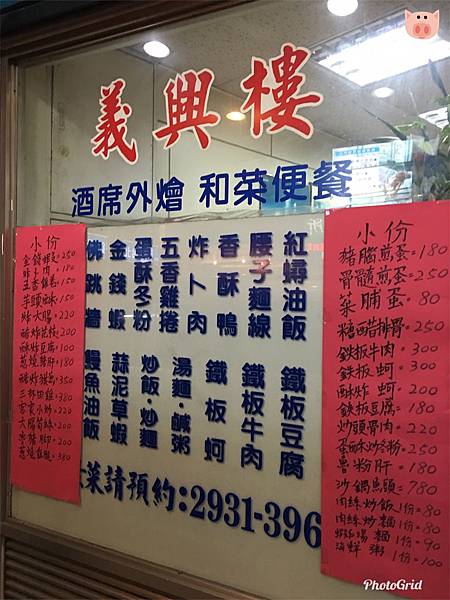 義興樓
酒席外燴 和菜便餐
紅蟳油飯
腰子麵線
香酥鴨
炸卜肉
五香雞捲
蛋酥冬粉
金錢蝦
佛跳牆
鐵板豆腐
鐵板牛肉
鐵板蚵
湯麵·鹹粥
炒飯·炒麵
蒜泥草蝦
鰻魚油飯
菜請預約:2931-396
小份
豬腦煎蛋·180
骨髓煎蛋·250
菜脯蛋·80
糖醋排骨·250
鉄板牛肉·300
鉄板蚵·300
酥炸蚵·200
鉄板豆腐·180
炒頭骨肉·220
蛋酥炒冬粉·250
魯粉肝·180
沙鍋魚頭·780
肉絲炒飯1份·80
肉絲炒麵1份·80
蝦仁湯麵1份·90
海鮮粥1份·100
小份
金錢蝦·250
炸卜肉·180
五香雞卷·150
150
炸大腸·220
200
100
180
350
三杯田雞·380
客家小炒·220
大腸·200
200
380
PhotoGrid